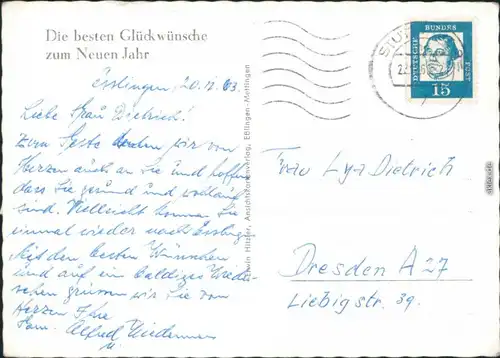 Die besten Glückwünsche
zum Neuen Jahr
Esslingen, 20.12.63
Liebe Frau Dietrich!
Zum Feste denken wir von
Herzen auch an Sie und hoffen
dass Sie gesund und wohlauf
sind. Vielleicht kommen Sie
einmal wieder nach Esslingen
Mit den besten Wünschen
und auf ein baldiges Wieder-
sehen grüssen wir Sie von
Herzen Ihre
Fam. Alfred
Erwin Hilzler, Ansichtskartenverlag, Eßlingen-Mettingen
DEUTSCHE
BUNDES
POST
15
Frau Lya Dietrich
Dresden A 27
Liebigstr. 39.